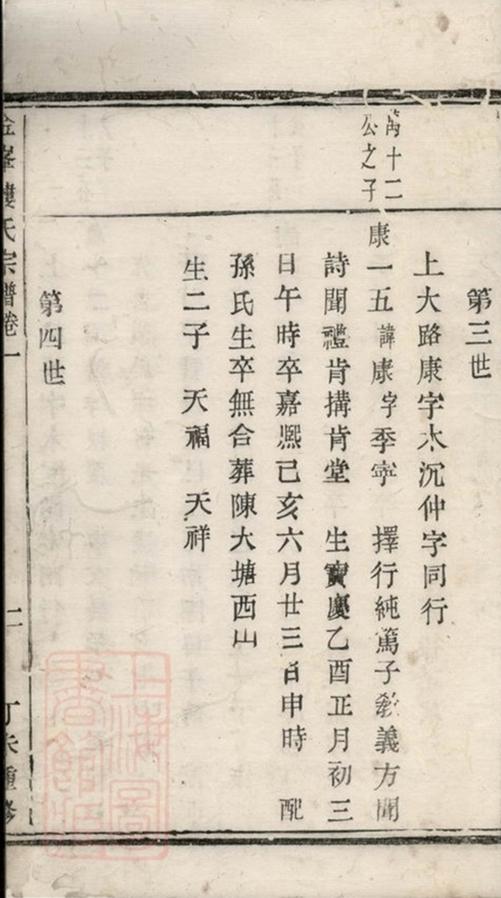 第三世
上大路康字木沉仲字同行
萬十二
公之子
康一五諱康字季寧 擇行純篤子教義方聞
詩聞禮肯搆肯堂 生寶慶乙酉正月初三
日午時卒嘉熙己亥六月廿三日申時 配
孫氏生卒無合葬陳大塘西山
生二子 天福 天祥
第四世
金峯樓氏宗譜卷一 二 丁未重修
上海圖書館藏